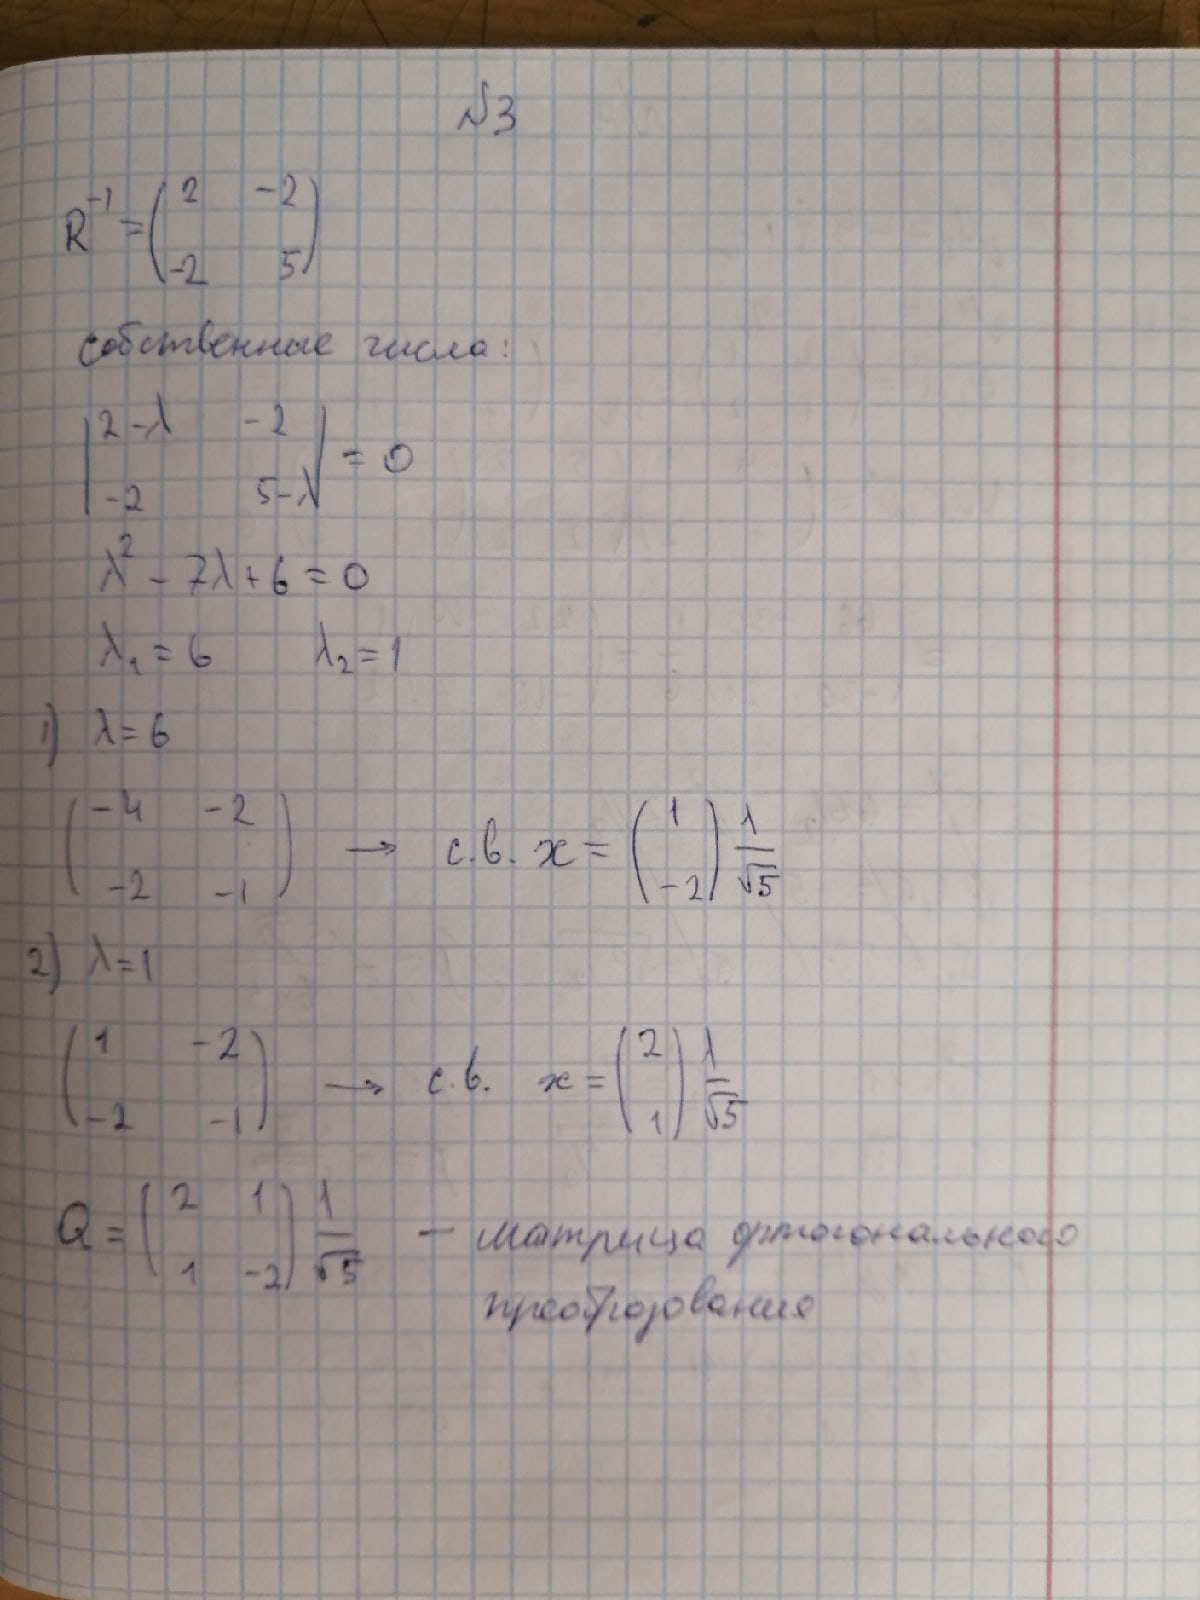 №3
R⁻¹ = (2 -2
-2 5)
собственные числа:
|2-λ -2
-2 5-λ| = 0
λ² - 7λ + 6 = 0
λ₁ = 6 λ₂ = 1
1) λ = 6
(-4 -2
-2 -1) → с.в. x = (1
-2) 1/√5
2) λ = 1
(1 -2
-2 -1) → с.в. x = (2
1) 1/√5
Q = (2 1
1 -2) 1/√5 - матрица ортогонального
преобразования